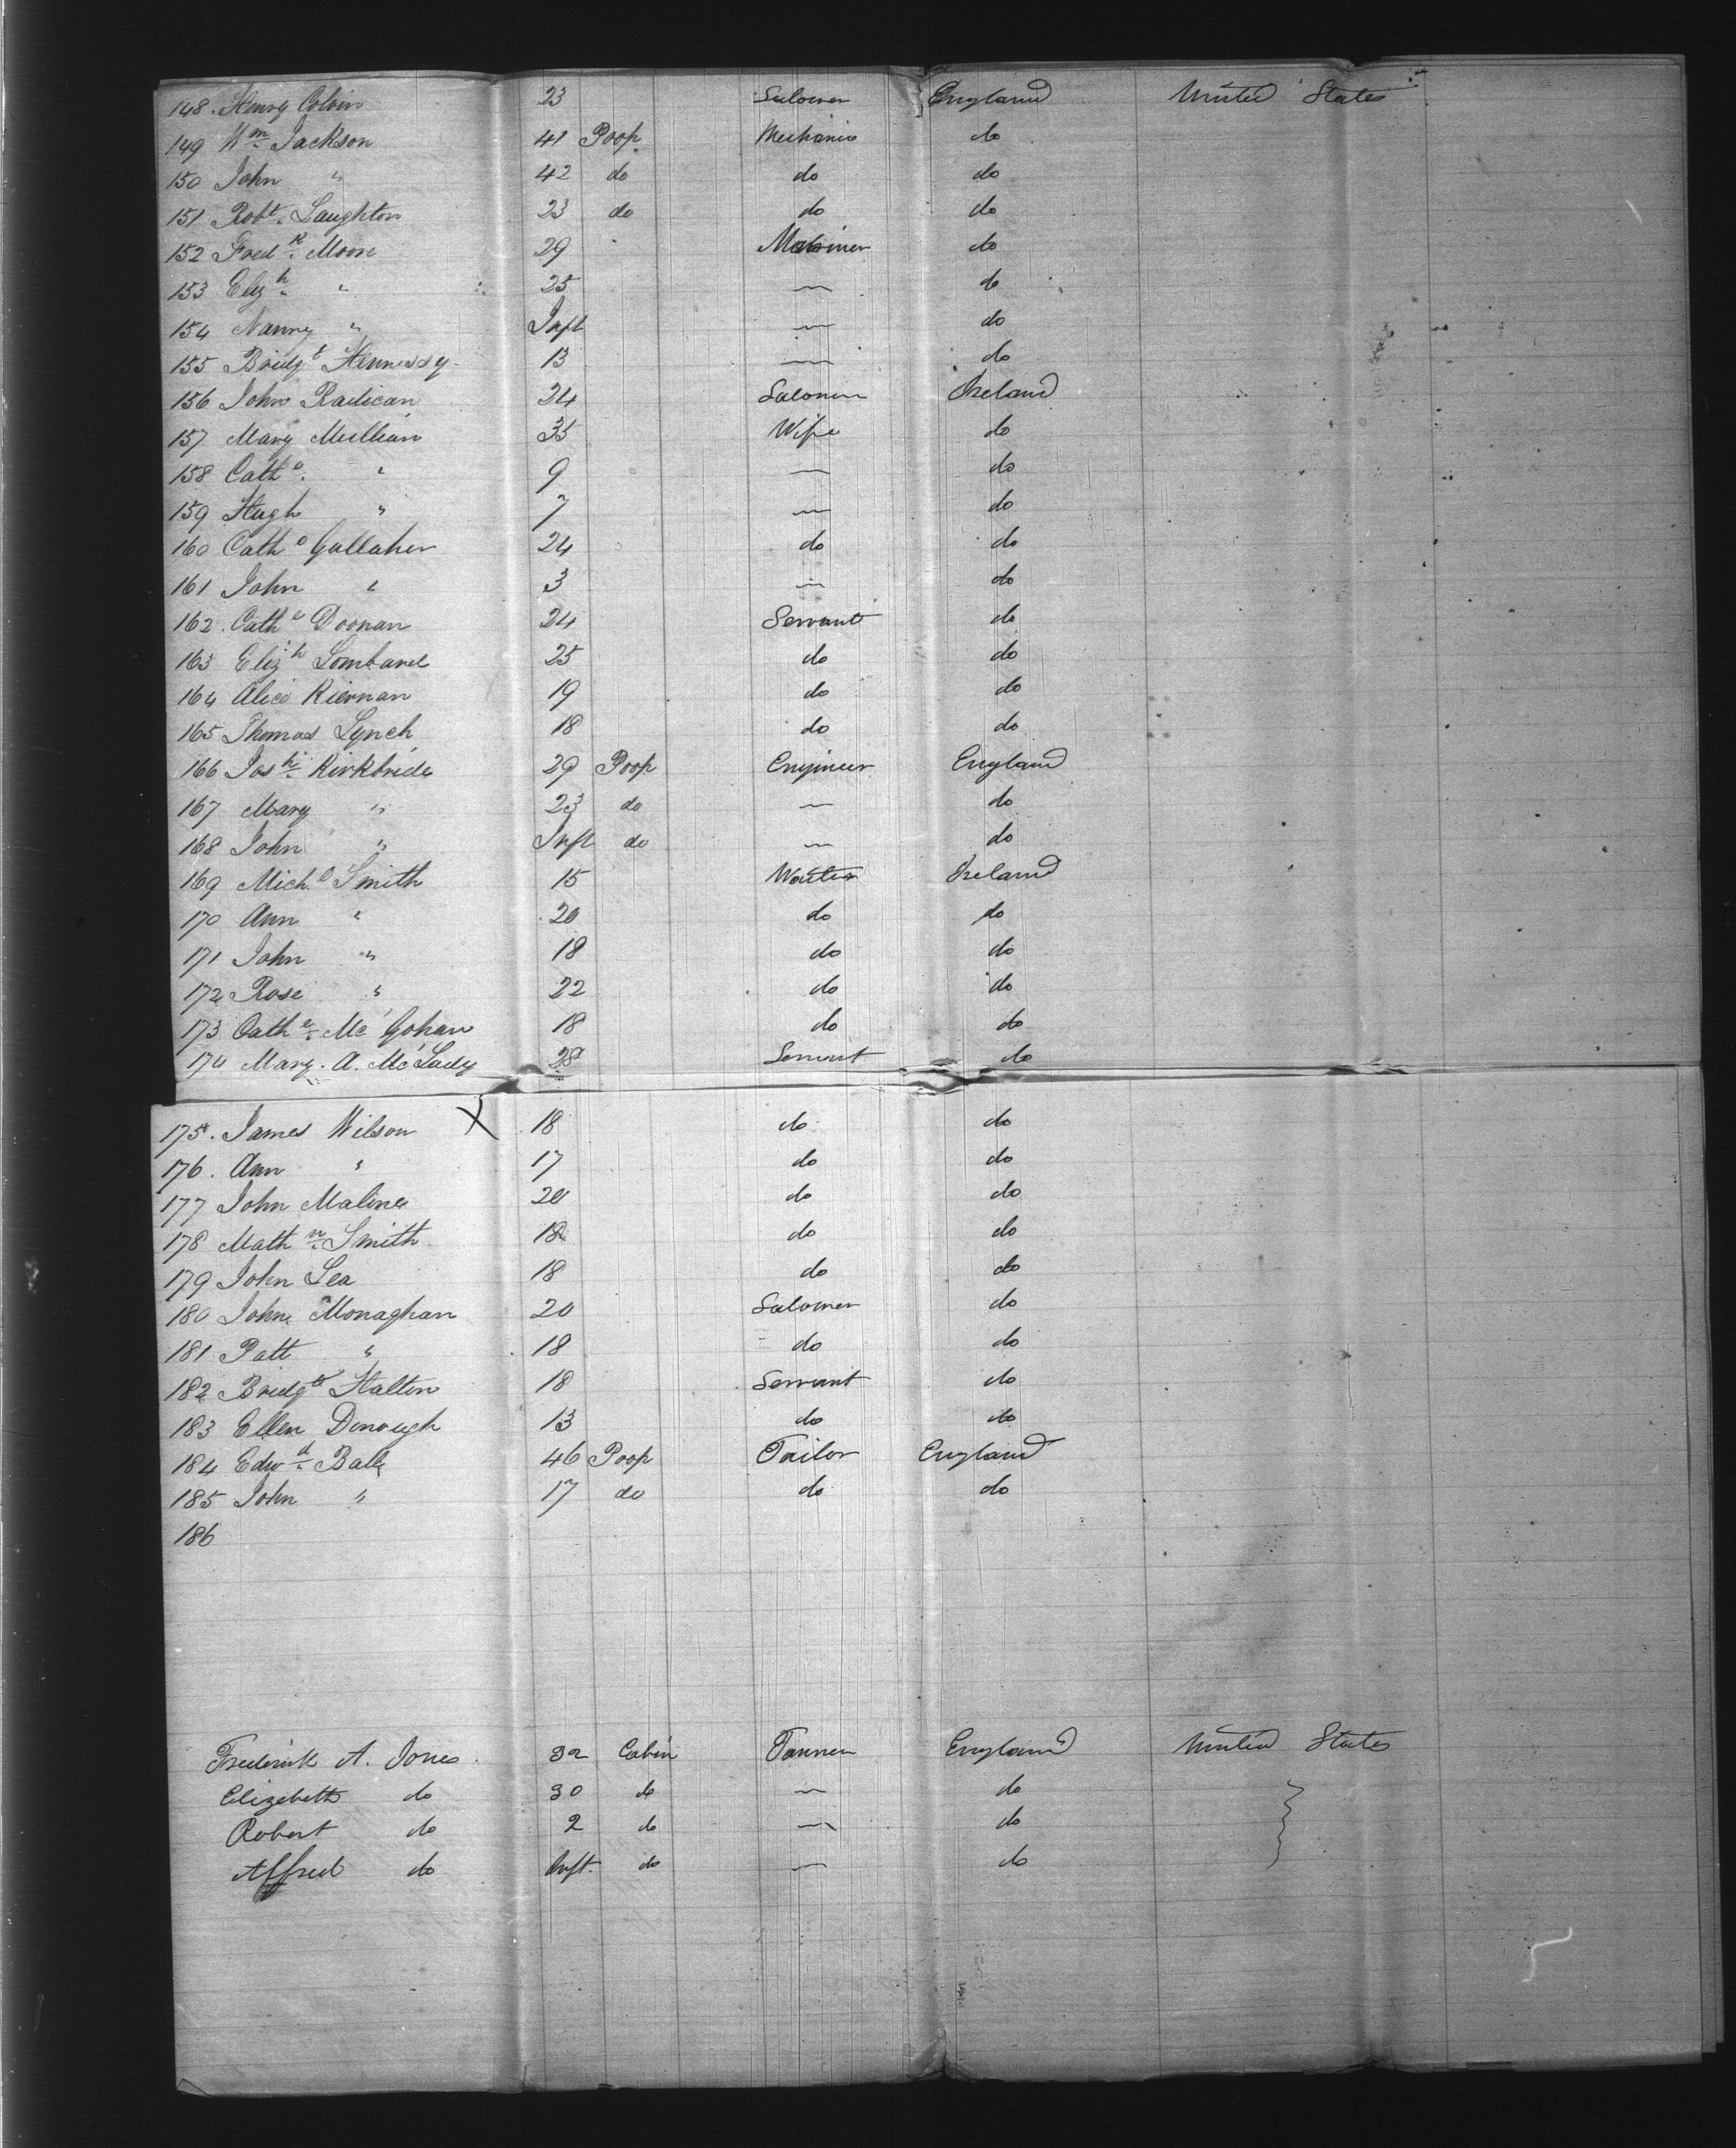 148. Henry Colvin 23 Labourer England United States
149 Wm Jackson 41 Poop Mechanic do
150 John " 42 do do do
151 Robt. Laughton 23 do do do
152 Fredk. Moon 29 Mariner do
153 Elizh. " 25 — do
154 Nanny " Inft — do
155 Bridgt Hennessy 13 — do
156 John Radican 24 Labourer Ireland
157 Mary Mullian 35 Wife do
158 Cathe. " 9 — do
159 Hugh " 7 — do
160 Cathe Gallaher 24 do do
161 John " 3 — do
162. Cathe Doonan 24 Servant do
163 Elizh Lombard 25 do do
164 Alice Kiernan 19 do do
165 Thomas Lynch 18 do do
166 Josh. Kirkbride 29 Poop Engineer England
167 Mary " 23 do — do
168 John " Inft do — do
169 Michl Smith 15 Ireland
170 Ann " 20 do do
171 John " 18 do do
172 Rose " 22 do do
173 Cathe. Mc Gohan 18 do do
174 Mary. A. McLady 28 Servant do
175. James Wilson X 18 do do
176. Ann " 17 do do
177 John Maline 20 do do
178 Mathw. Smith 18 do do
179 John Lea 18 do do
180 John Monaghan 20 Labourer do
181 Patt " 18 do do
182 Bridgt Halton 18 Servant do
183 Ellen Donough 13 do do
184 Edwd. Ball 46 Poop Tailor England
185 John " 17 do do do
186
Frederick A. Jones 32 Cabin Tanner England United States
Elizabeth do 30 do — do
Robert do 2 do — do
Alfred do Inft. do — do